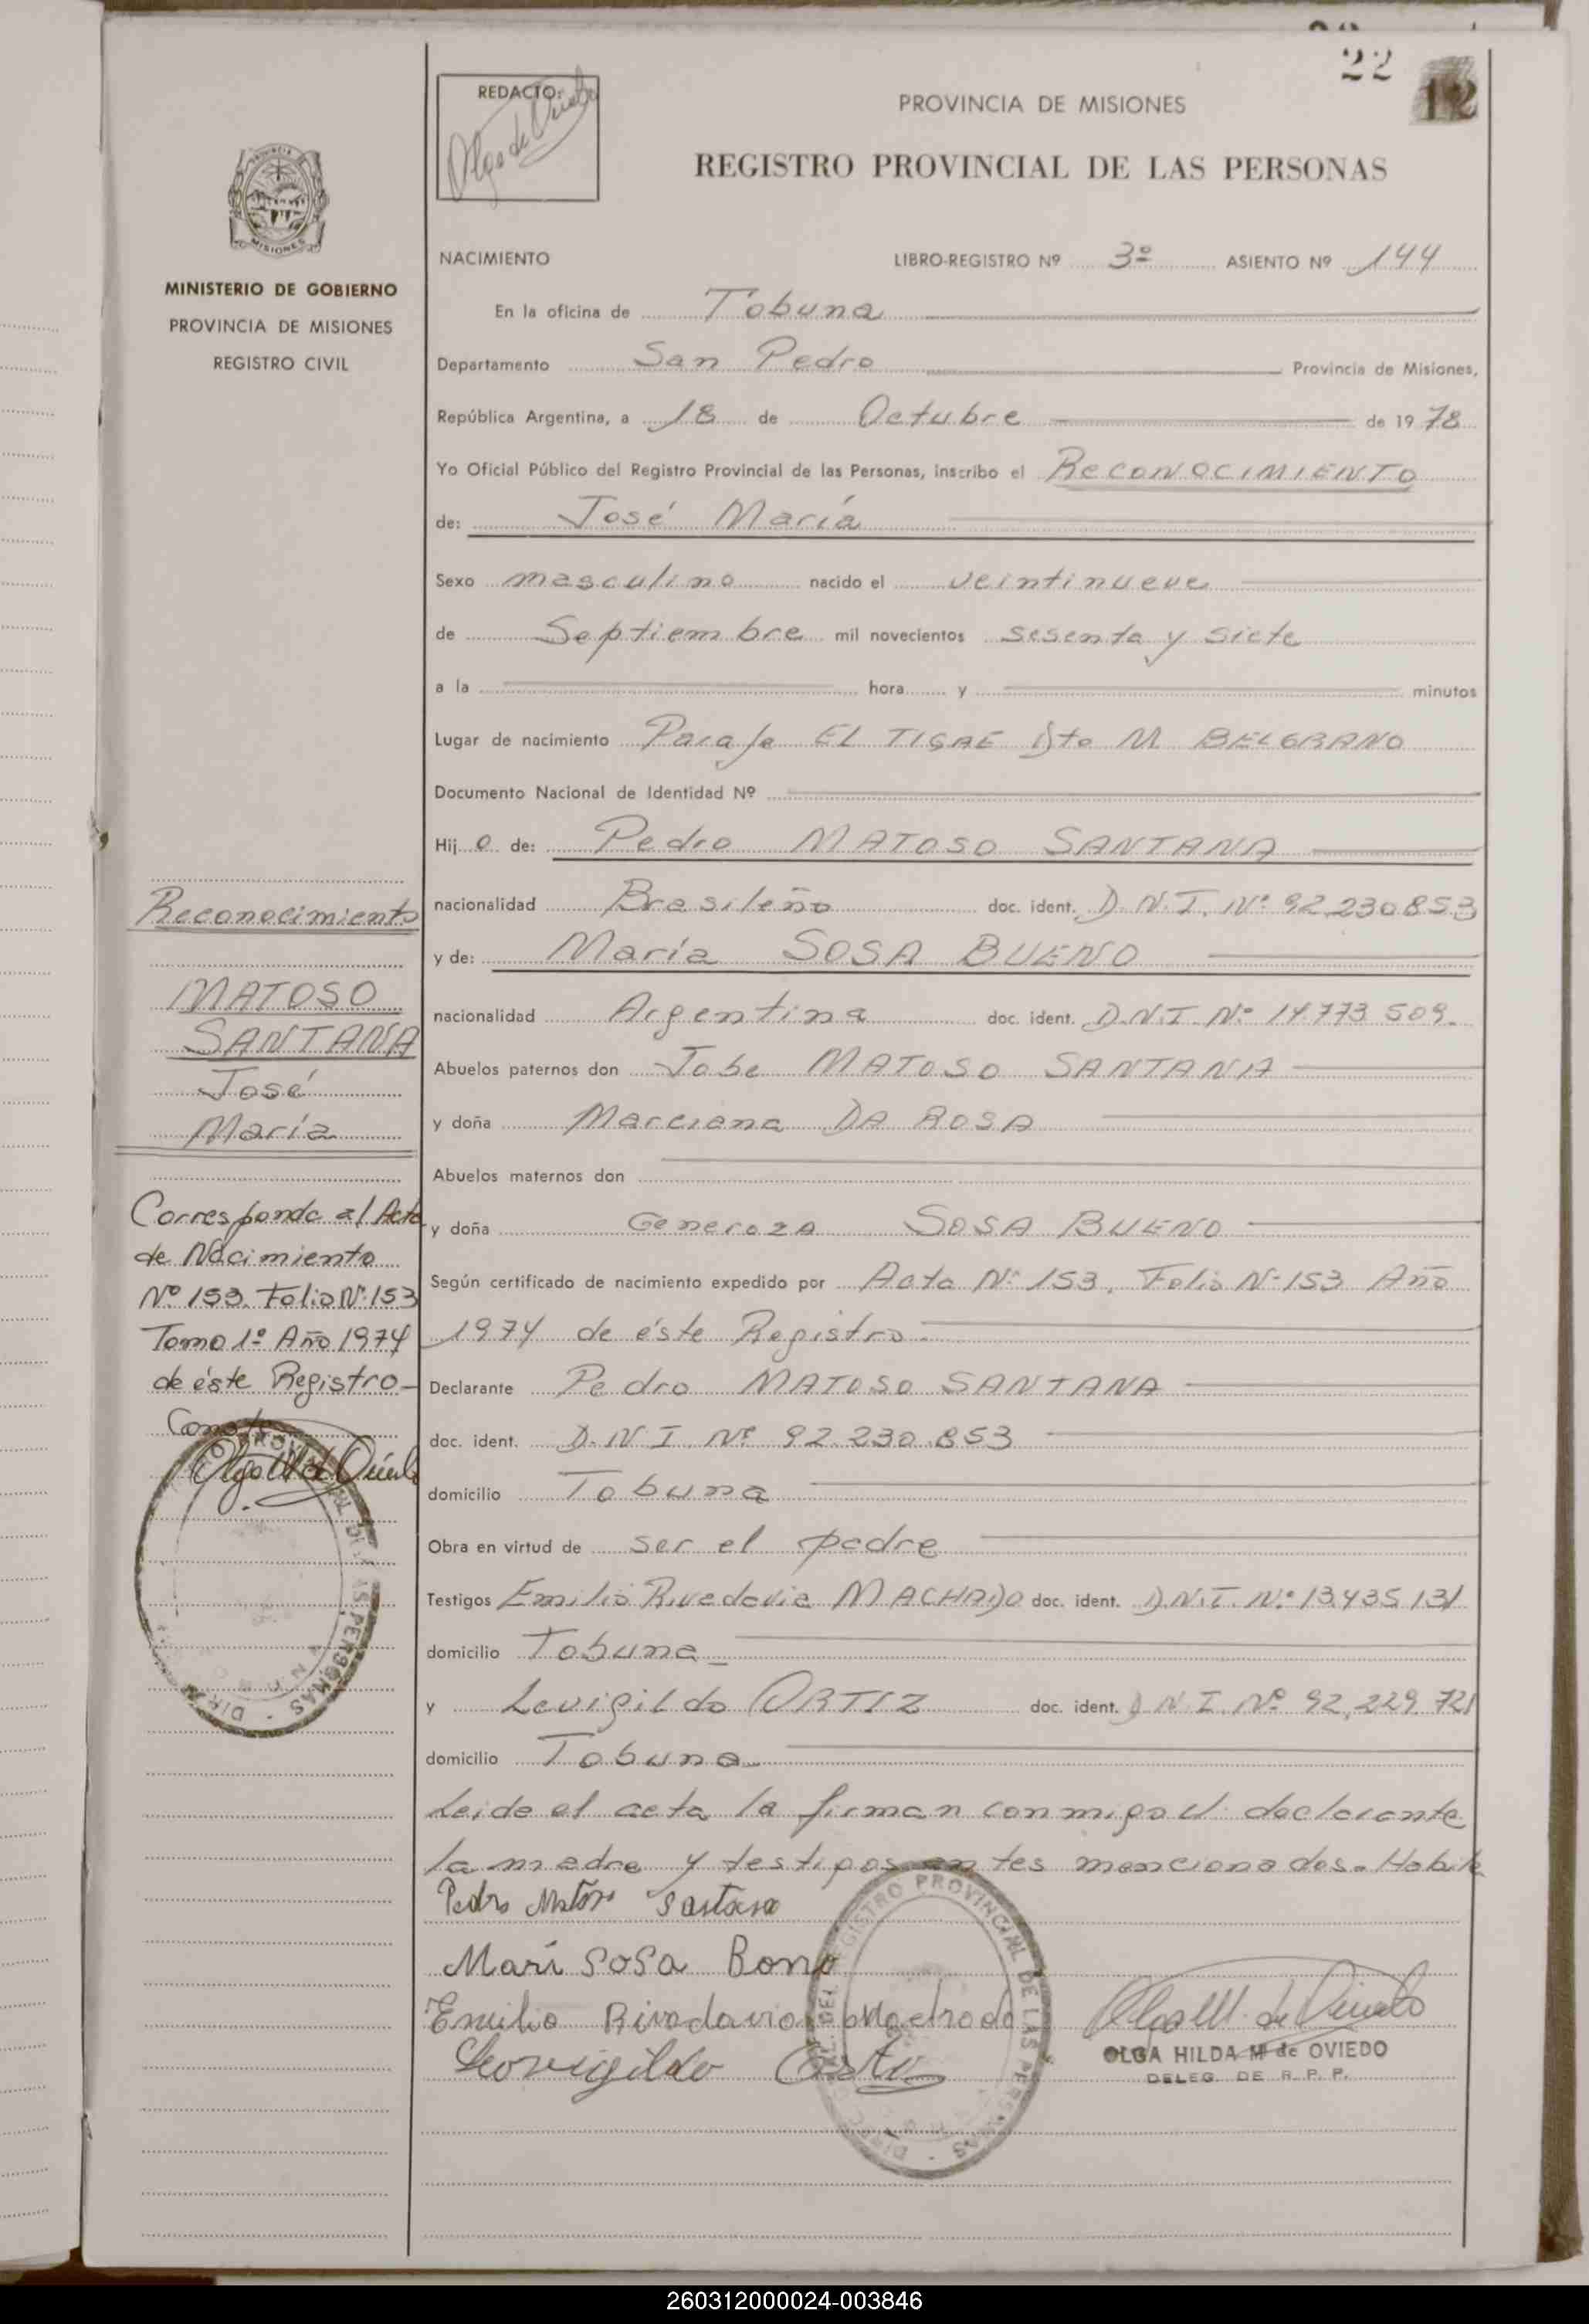 22
12
REDACTO:
Olga de Oviedo
PROVINCIA DE MISIONES
REGISTRO PROVINCIAL DE LAS PERSONAS
MISIONES
MINISTERIO DE GOBIERNO
PROVINCIA DE MISIONES
REGISTRO CIVIL
NACIMIENTO LIBRO-REGISTRO Nº 3º ASIENTO Nº 144
En la oficina de Tobuna
Departamento San Pedro Provincia de Misiones,
República Argentina, a 18 de Octubre de 1978
Yo Oficial Público del Registro Provincial de las Personas, inscribo el RECONOCIMIENTO
de: José María
Sexo masculino nacido el veintinueve
de Septiembre mil novecientos sesenta y siete
a la hora y minutos
Lugar de nacimiento Paraje EL TIGRE Dto M BELGRANO
Documento Nacional de Identidad Nº
Hij o de: Pedro MATOSO SANTANA
nacionalidad Brasileño doc. ident. D.N.I. Nº 92.230.853
y de: María SOSA BUENO
nacionalidad Argentina doc. ident. D.N.I Nº 14.773.509.
Abuelos paternos don Jobe MATOSO SANTANA
y doña Marciana DA ROSA
Abuelos maternos don
y doña Generoza SOSA BUENO
Según certificado de nacimiento expedido por Acta Nº 153, Folio Nº 153 Año
1974 de éste Registro.
Declarante Pedro MATOSO SANTANA
doc. ident. D.N.I. Nº 92.230.853
domicilio Tobuna
Obra en virtud de ser el padre
Testigos Emilio Rivadavia MACHADO doc. ident. D.N.I. Nº 13.435.131
domicilio Tobuna
y Levigildo ORTIZ doc. ident. D.N.I. Nº 92,229.721
domicilio Tobuna
Leida el acta la firman conmigo el declarante
la madre y testigos antes mencionados.
Pedro Matoso Santana
Mari Sosa Bono
Emilio Rivadavia Machado
Leovigildo Ortiz
Olga M. de Oviedo
OLGA HILDA M de OVIEDO
DELEG. DE R. P. P.
DEL REGISTRO PROVINCIAL DE LAS PERSONAS
Reconocimiento
MATOSO
SANTANA
José
María
Corresponde al Acta
de Nacimiento
Nº 153. Folio Nº 153
Tomo 1º Año 1974
de éste Registro-
Conste
Olga M de Oviedo
PROVINCIAL DE LAS PERSONAS
260312000024-003846